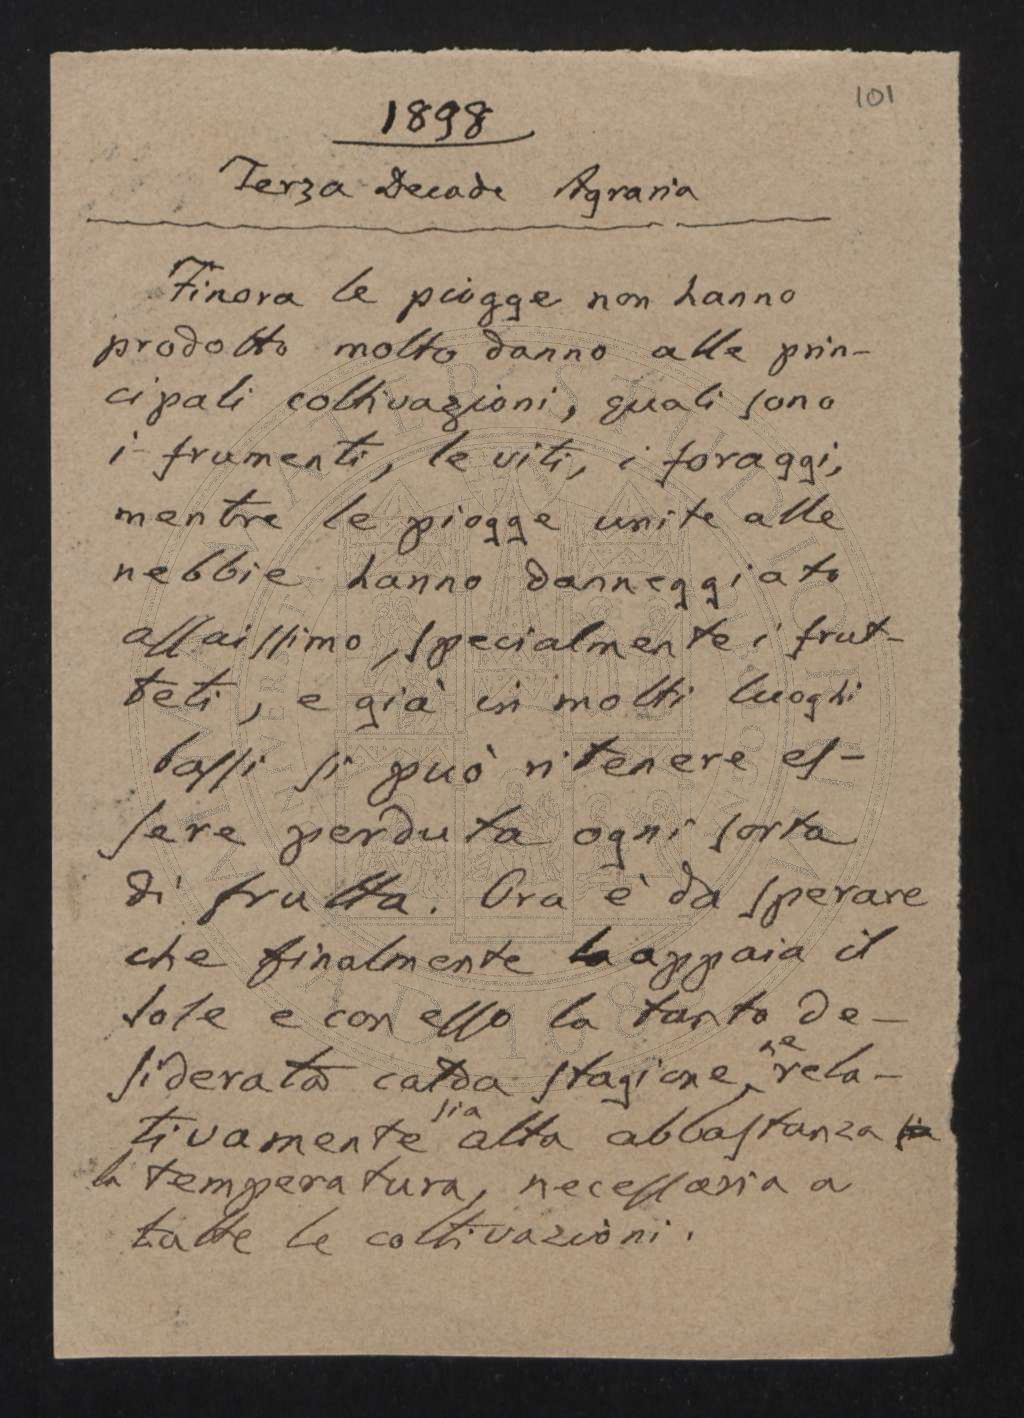 101
1898
Terza Decade Agraria
Finora le piogge non hanno
prodotto molto danno alle prin-
cipali coltivazioni, quali sono
i frumenti, le viti, i foraggi,
mentre le piogge unite alle
nebbie hanno danneggiato
assaissimo, specialmente i frut-
teti, e già in molti luoghi
bassi si può ritenere es-
sere perduta ogni sorta
di frutta. Ora è da sperare
che finalmente appaia il
sole e con esso la tanto de-
siderata calda stagione, ne rela-
tivamente sia alta abbastanza sia
la temperatura, necessaria a
tutte le coltivazioni.
ALMA MATER STUDIORUM
A.D. 1088